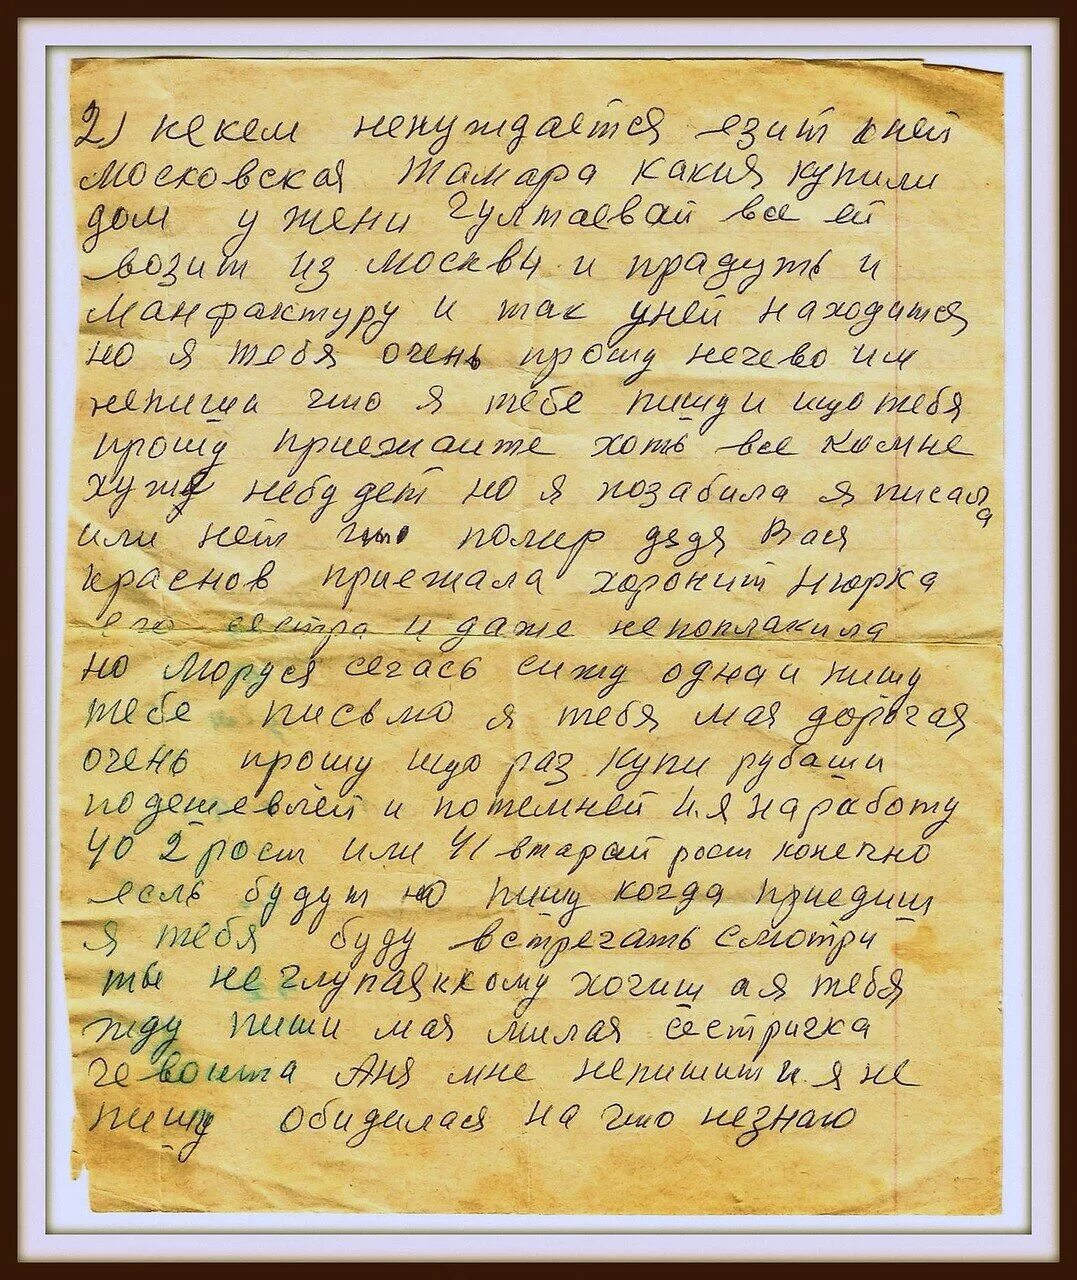 2) некем ненуждается езит кней
московская Тамара какия купили
дом у жени Гултаевай все ей
возит из москвы и прадуты и
манфактуру и так уней находится
но я тебя очень прошу нечево им
непиши что я тебе пишу и що тебя
прошу приежайте хоть все комне
хуже небудет но я позабила я писала
или нет что помер дядя Вася
краснов приежала хоронит Нюрка
его сестра и даже непоплакила
но Моруся сечась сижу одна и пишу
тебе письмо я тебя мая дорогая
очень прошу що раз купи рубаши
подешевлей и потемней И.я на работу
40 2 рост или 41 втарой рост конечно
есль будут но пишу когда приедиш
я тебя буду встречать смотри
ты не глупая ккому хочиш а я тебя
жду пиши мая милая сестричка
чевоита Аня мне непишит и я не
пишу обидилася на что незнаю